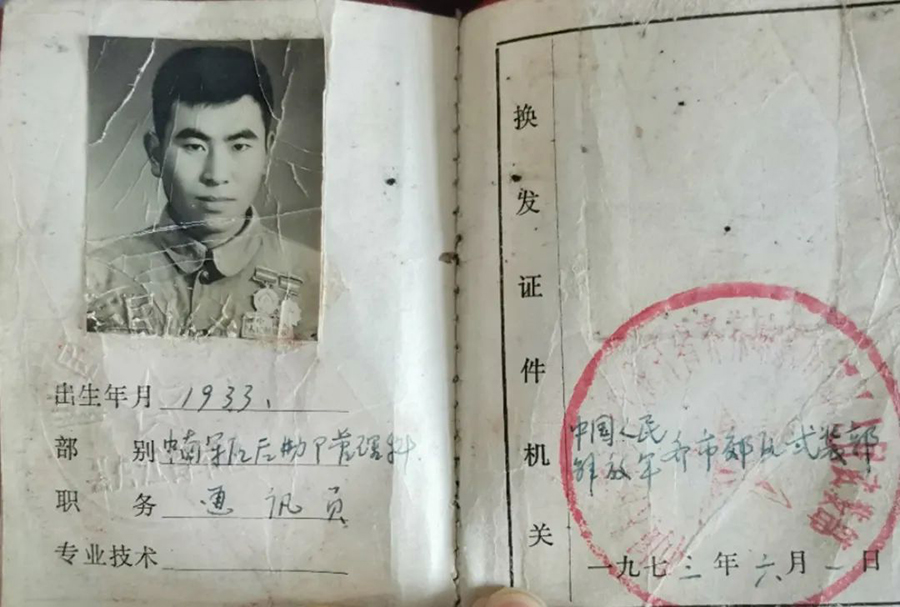 出生年月 1933、
部别 中南军区后勤部管理科
职务 通讯员
专业技术
换发证件机关
中国人民
解放军齐市郊区武装部
一九七三年六月一日